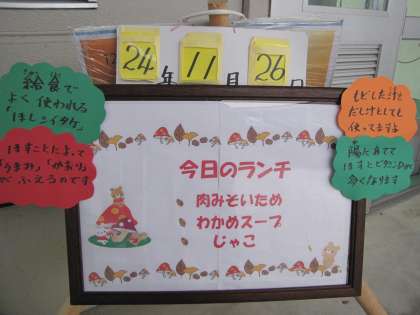 24年11月26日
給食で
よく使われる
「ほしシイタケ」
ほすことによって
「うまみ」「かおり」
がふえるのです
今日のランチ
肉みそいため
わかめスープ
じゃこ
もどしたけと
だしけとしても
使ってますよ
陽に当てて
ほすとビタミンDが
多くなります